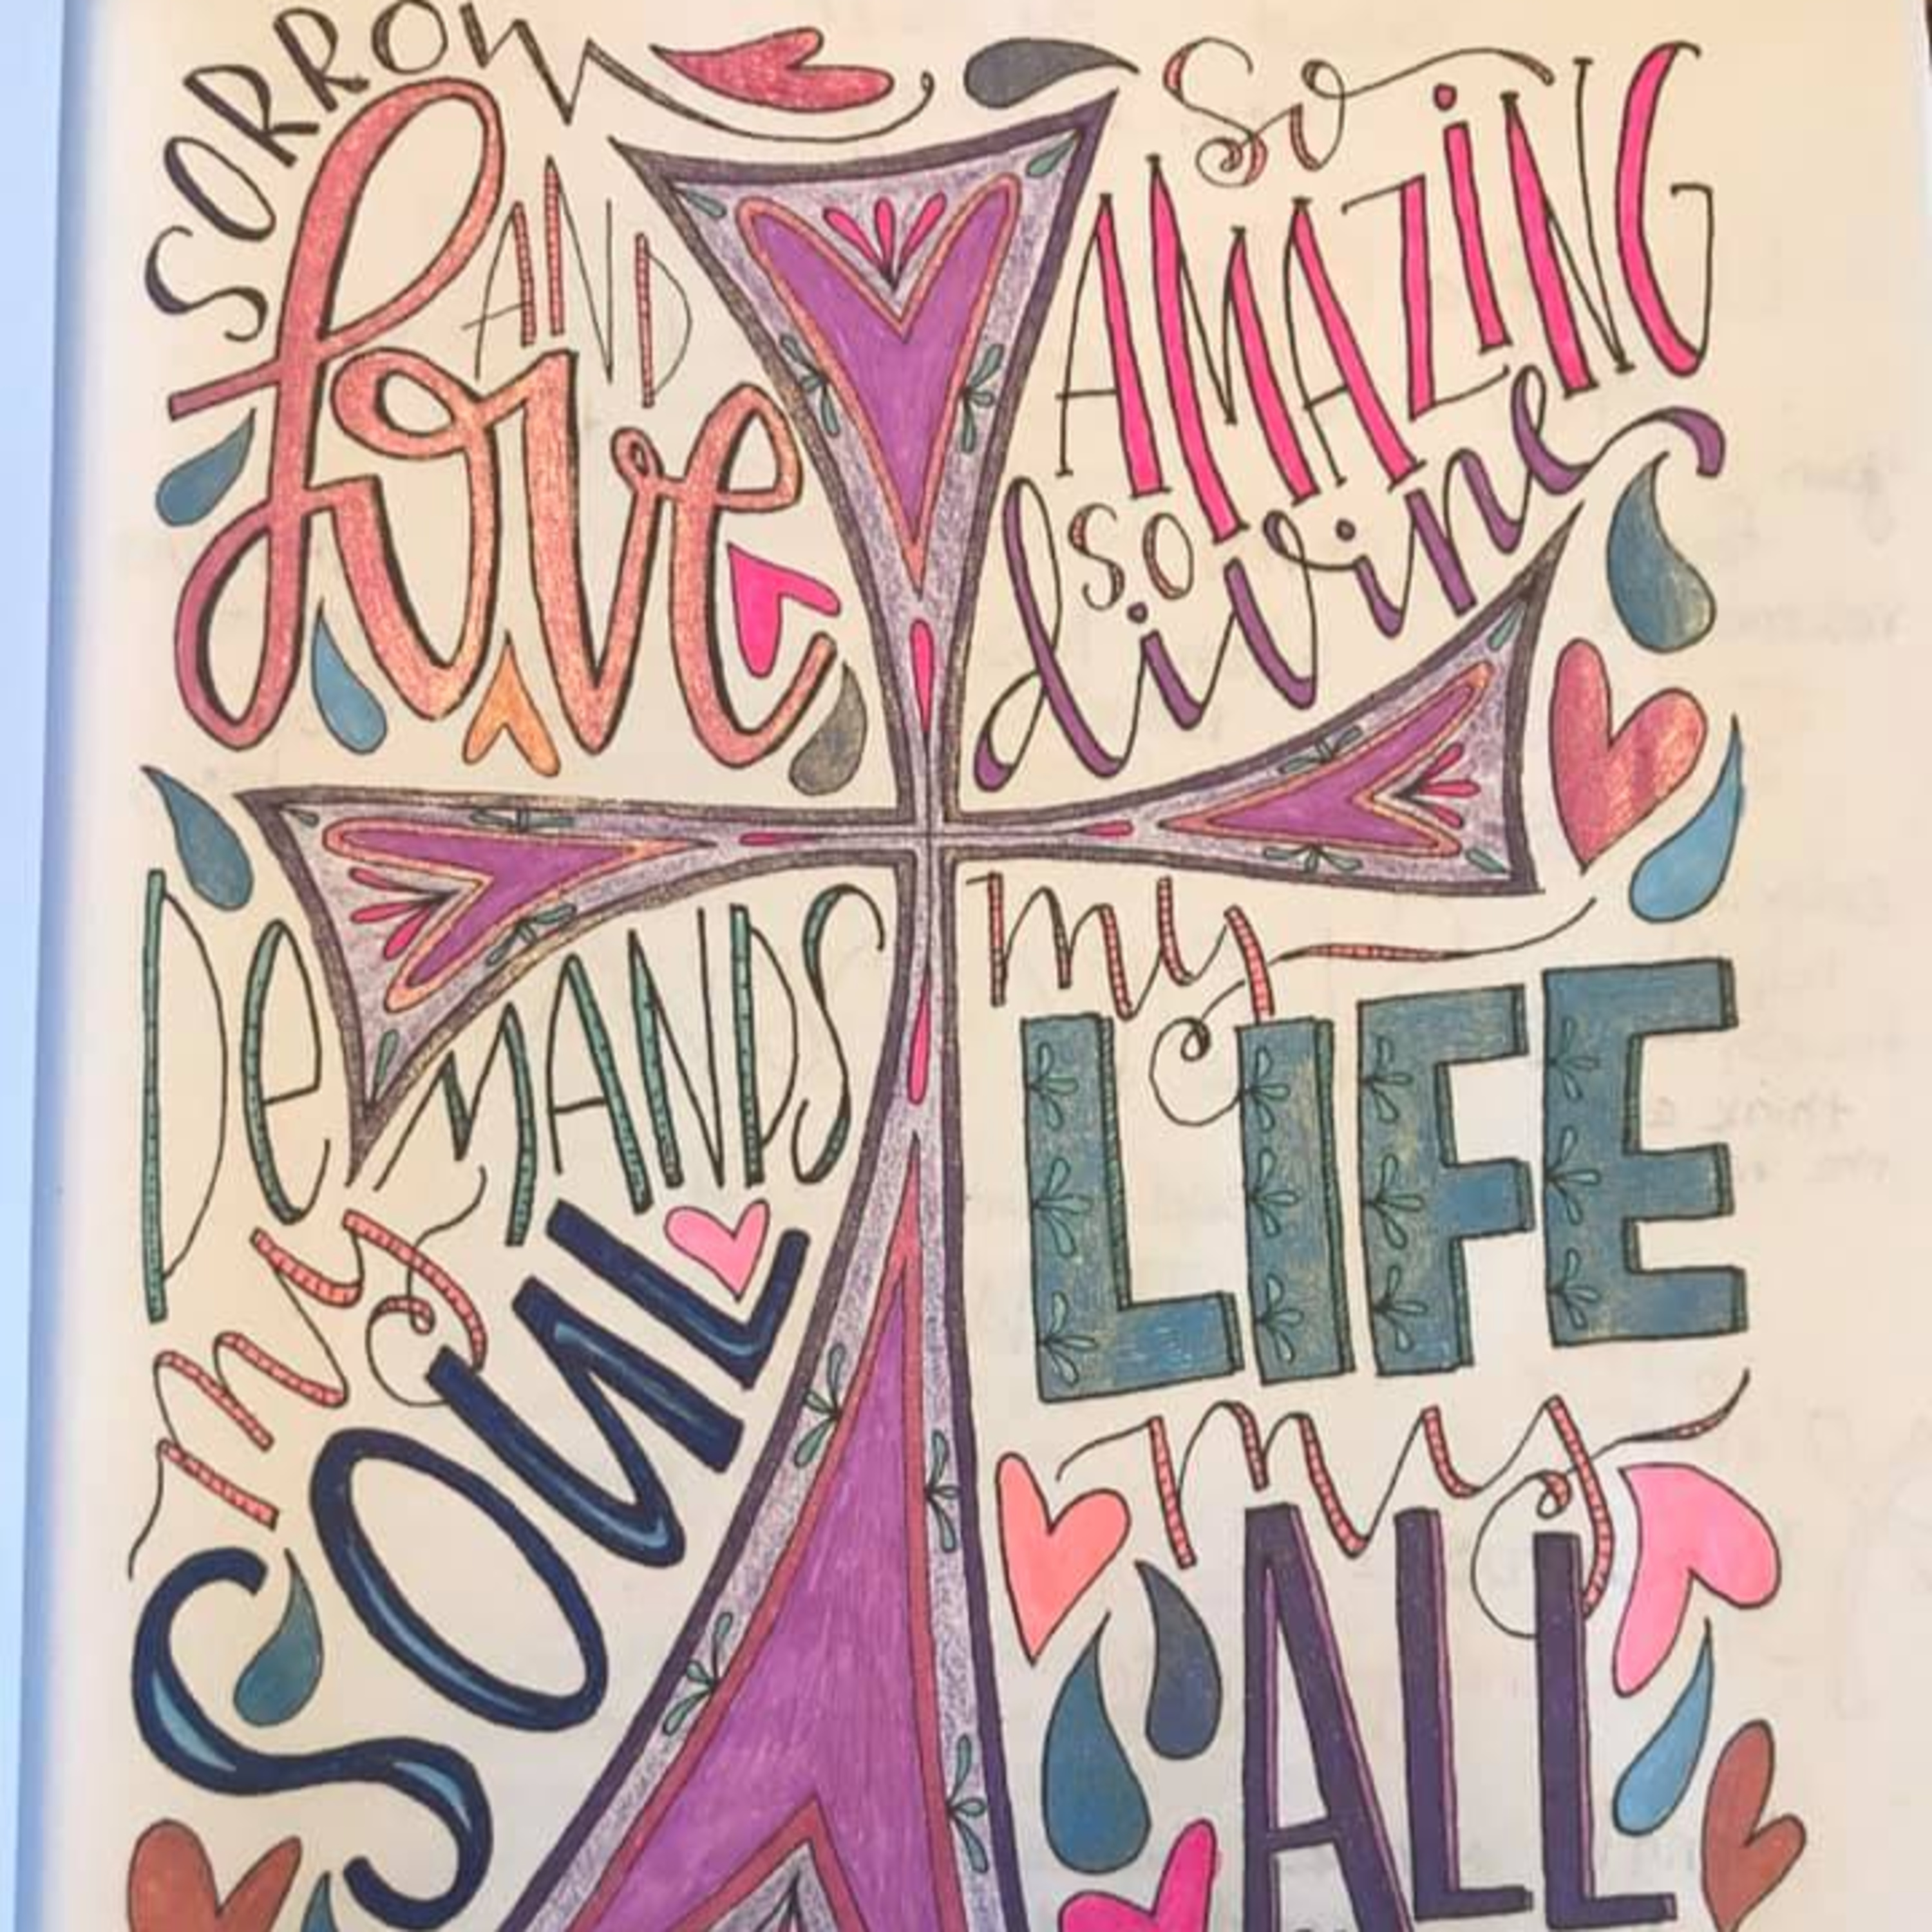 SORROW
AND
love
So
AMAZING
so
divine
DeMANDS
my
SOUL
my
LIFE
my
ALL